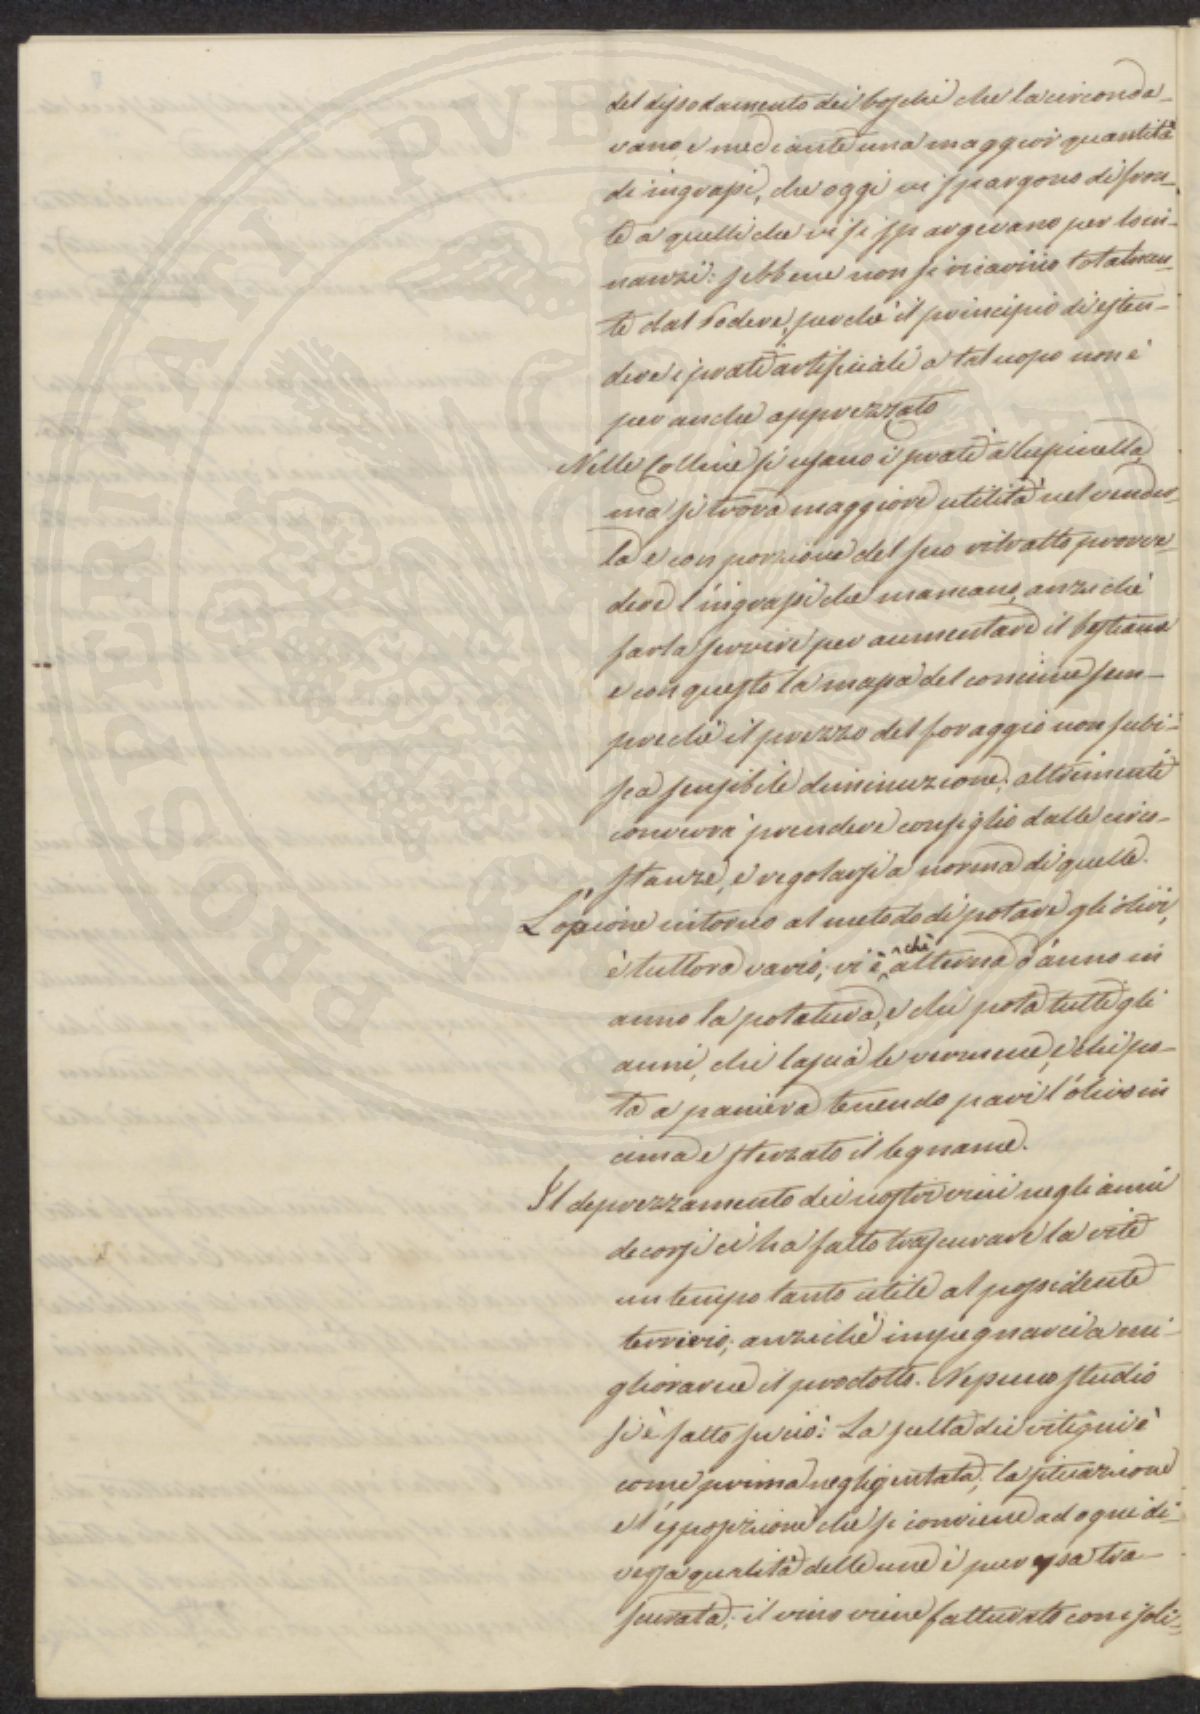 del dissodamento dei boschi che la circonda-
vano e mediante una maggior quantità
di ingrassi, che oggi vi si spargono di fron-
te a quelli che vi si spargevano per loin-
nanzi: sebbene non si ricavino totalmen-
te dal Podere, perché il principio di esten-
dere i prati artificiali a tal uopo non è
per anche apprezzato
Nelle Colline si usano i prati a lupinella
ma si trova maggiore utilità nel vender-
la e con porzione del suo ritratto provve-
dere l'ingrassi che mancano, anziché
farla servire per aumentare il bestiame
e con questo la massa del concime sem-
preché il prezzo del foraggio non subi-
sca sensibile diminuzione; altrimenti
converrà prendere consiglio dalle circo-
stanze, e regolarsi a norma di quelle.
L'opinione intorno al metodo di potare gli olivi,
è tuttora vario; vi è chi alterna d'anno in
anno la potatura, e chi pota tutti gli
anni, chi lascia le vermene, e chi po-
ta a paniera tenendo pari l'olivo in
cima e sterzato il legname.
Il deprezzamento dei nostri vini negli anni
decorsi ci ha fatto trascurare la vite
un tempo tanto utile al possidente
terriero; anziché impegnarci a mi-
gliorarne il prodotto. Nessuno studio
si è fatto su ciò: La scelta dei vitigni è
come prima negligentata; la situazione
e l'esposizione che si conviene ad ogni di-
versa qualità delle uve è pur essa tra-
scurata; il vino viene fatturato con i soli-
PROSPERITATI PVBLICAE